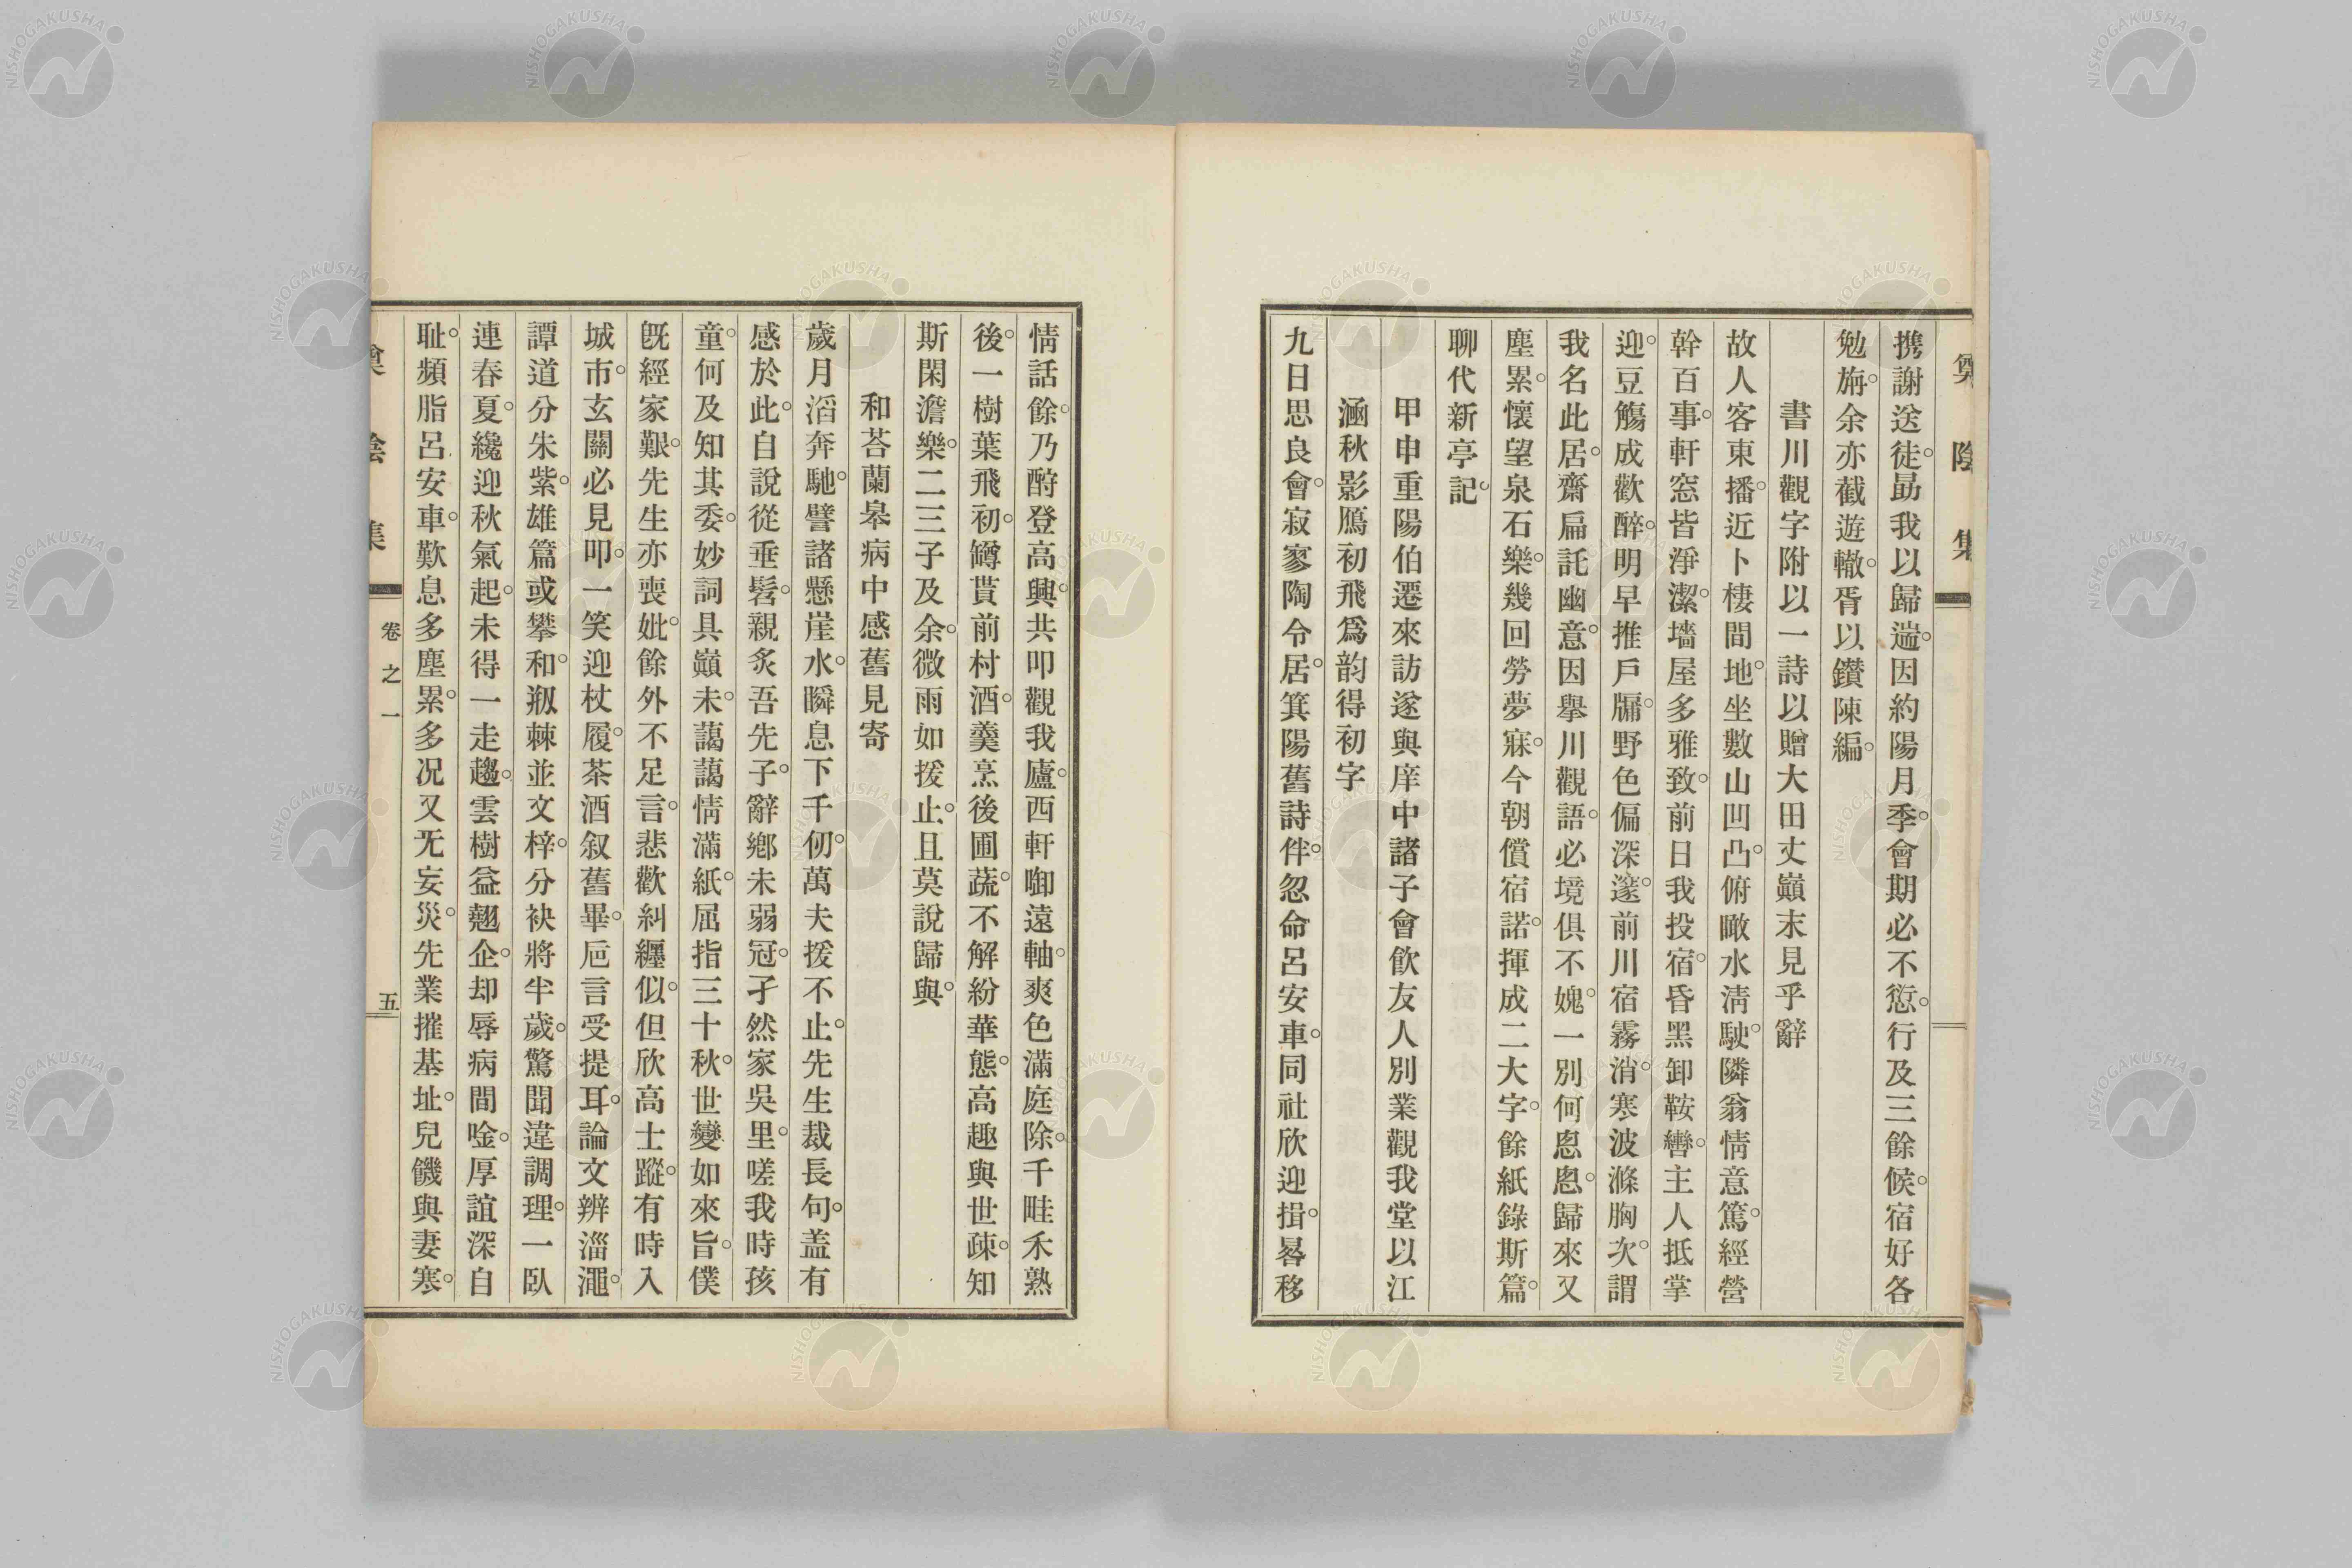 携謝送徒。勗我以歸遄。因約陽月季。會期必不愆。行及三餘候。宿好各
勉旃。余亦截遊轍。胥以鑽陳編。
書川觀字附以一詩以贈大田丈巓末見乎辭
故人客東播。近卜棲間地。坐數山凹凸。俯瞰水淸駛。隣翁情意篤。經營
幹百事。軒窓皆淨潔。墻屋多雅致。前日我投宿。昏黑卸鞍轡。主人抵掌
迎。豆觴成歡醉。明早推戶牖。野色偏深邃。前川宿霧消。寒波滌胸次。謂
我名此居。齋扁託幽意。因擧川觀語。必境俱不媿。一別何恖恖。歸來又
塵累。懷望泉石樂。幾回勞夢寐。今朝償宿諾。揮成二大字。餘紙錄斯篇。
聊代新亭記。
甲申重陽伯遷來訪遂與庠中諸子會飮友人別業觀我堂以江
涵秋影鴈初飛爲韵得初字
九日思良會。寂寥陶令居。箕陽舊詩伴。忽命呂安車。同社欣迎揖。晷移
情話餘。乃酹登高興。共叩觀我廬。西軒啣遠軸。爽色滿庭除。千畦禾熟
後。一樹葉飛初。罇貰前村酒。羹烹後圃蔬。不解紛華態。高趣與世疎。知
斯閑澹樂。二三子及余。微雨如援止。且莫說歸與。
和荅蘭皋病中感舊見寄
歲月滔奔馳。譬諸懸崖水。瞬息下千仞。萬夫援不止。先生裁長句。盖有
感於此。自說從垂髫。親炙吾先子。辭鄕未弱冠。孑然家吳里。嗟我時孩
童。何及知其委。妙詞具巓末。藹藹情滿紙。屈指三十秋。世變如來旨。僕
旣經家艱。先生亦喪妣。餘外不足言。悲歡糾纒似。但欣高士蹤。有時入
城市。玄關必見叩。一笑迎杖履。茶酒叙舊畢。巵言受提耳。論文辨淄澠。
譚道分朱紫。雄篇或攀和。剏棘並文梓。分袂將半歲。驚聞違調理。一臥
連春夏。纔迎秋氣起。未得一走趨。雲樹益翹企。却辱病間唫。厚誼深自
耻。頻脂呂安車。歎息多塵累。多况又无妄災。先業摧基址。兒饑與妻寒。
陰集
卷之一
五